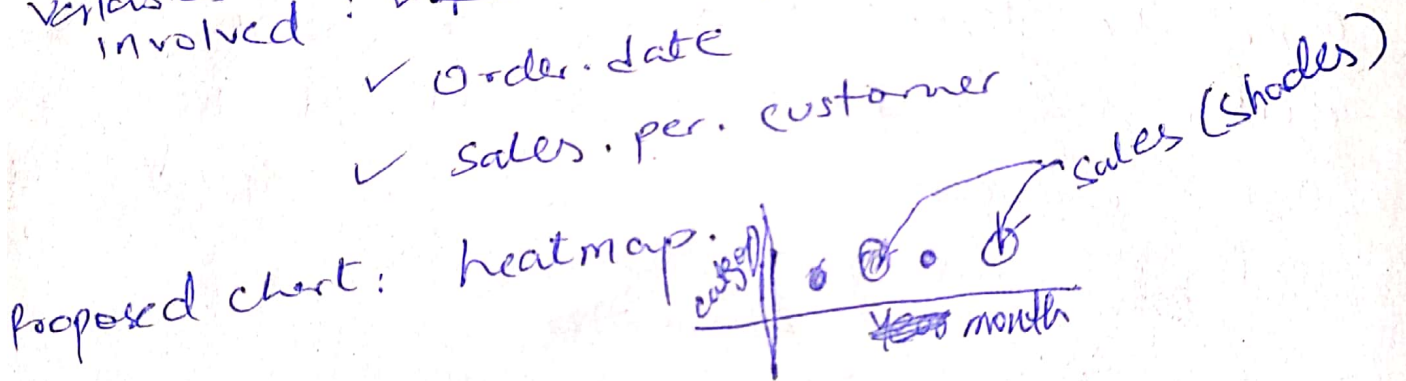 involved :
✓ Order.date
✓ Sales.per.customer
Proposed chart: heatmap.
sales (shades)
month